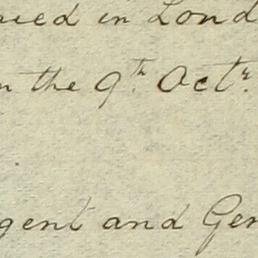 in Lond
the 9th Octr.
gent and Gen